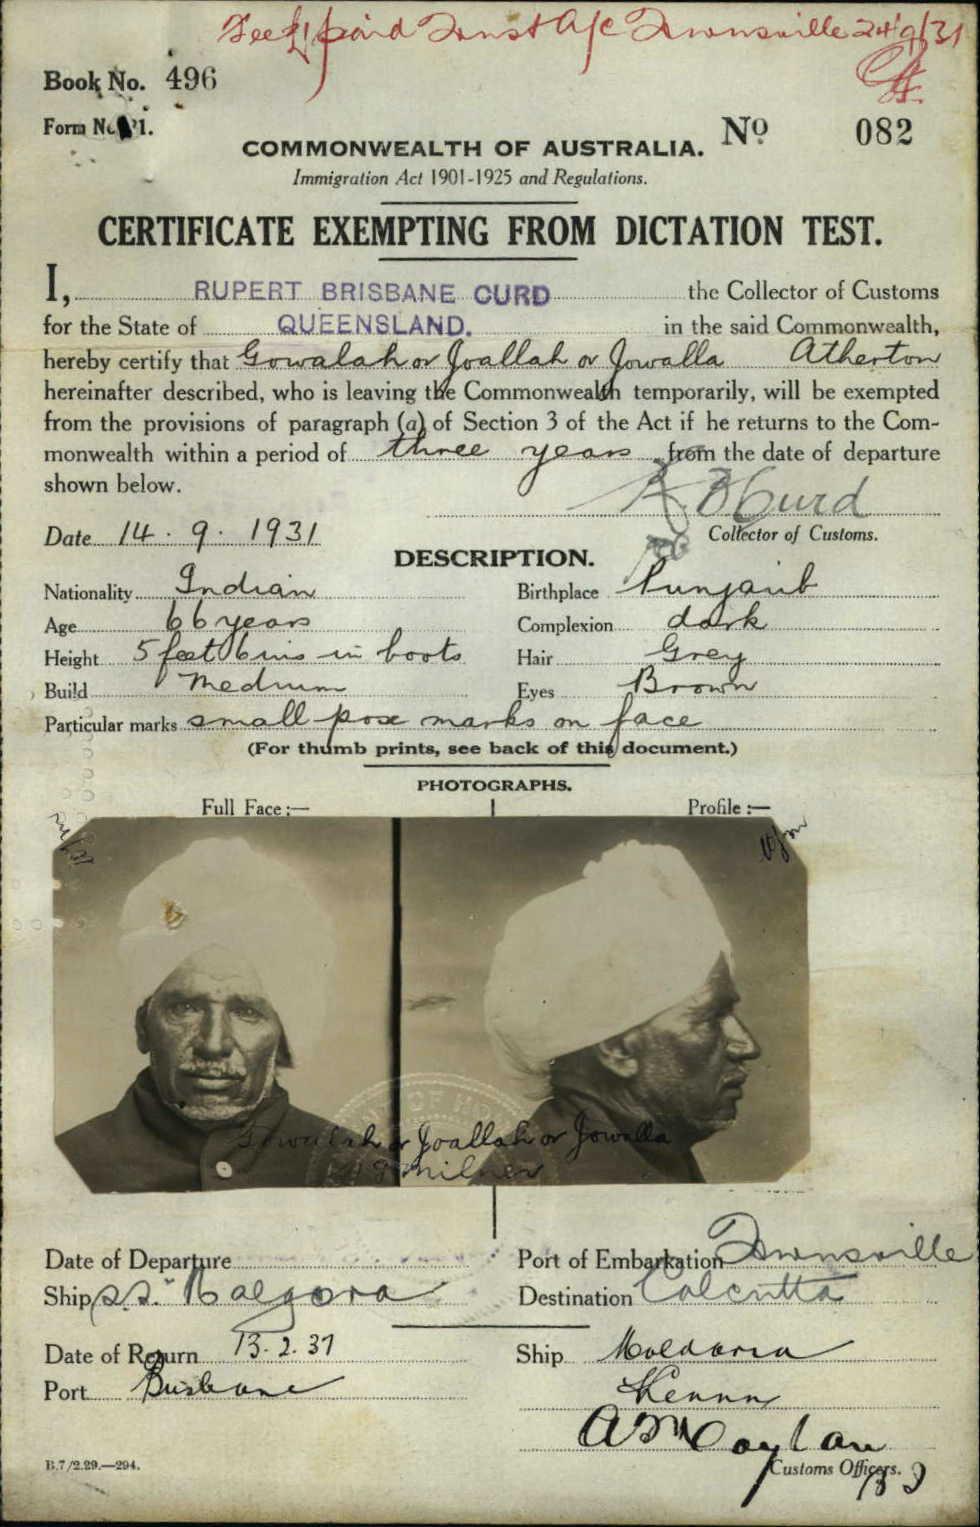 Fee £1 paid Trust A/c Townsville 24/9/31
Book No. 496
Form No. 21.
COMMONWEALTH OF AUSTRALIA.
No 082
Immigration Act 1901-1925 and Regulations.
CERTIFICATE EXEMPTING FROM DICTATION TEST.
I, RUPERT BRISBANE CURD the Collector of Customs
for the State of QUEENSLAND. in the said Commonwealth,
hereby certify that Gowalah or Joallah or Jowalla Atherton
hereinafter described, who is leaving the Commonwealth temporarily, will be exempted
from the provisions of paragraph (a) of Section 3 of the Act if he returns to the Com-
monwealth within a period of three years from the date of departure
shown below.
R B Curd
Date 14. 9. 1931
Collector of Customs.
DESCRIPTION.
Nationality Indian Birthplace Punjaub
Age 66 years Complexion dark
Height 5 feet 6 ins in boots Hair Grey
Build Medium Eyes Brown
Particular marks small pox marks on face
(For thumb prints, see back of this document.)
PHOTOGRAPHS.
Full Face :— Profile :—
Gowalah or Joallah or Jowalla
Milner
Date of Departure Port of Embarkation Townsville
Ship s.s. Destination Calcutta
Date of Return 13. 2. 37 Ship
Port Brisbane
Customs Officers.
B.7/2.29.—294.